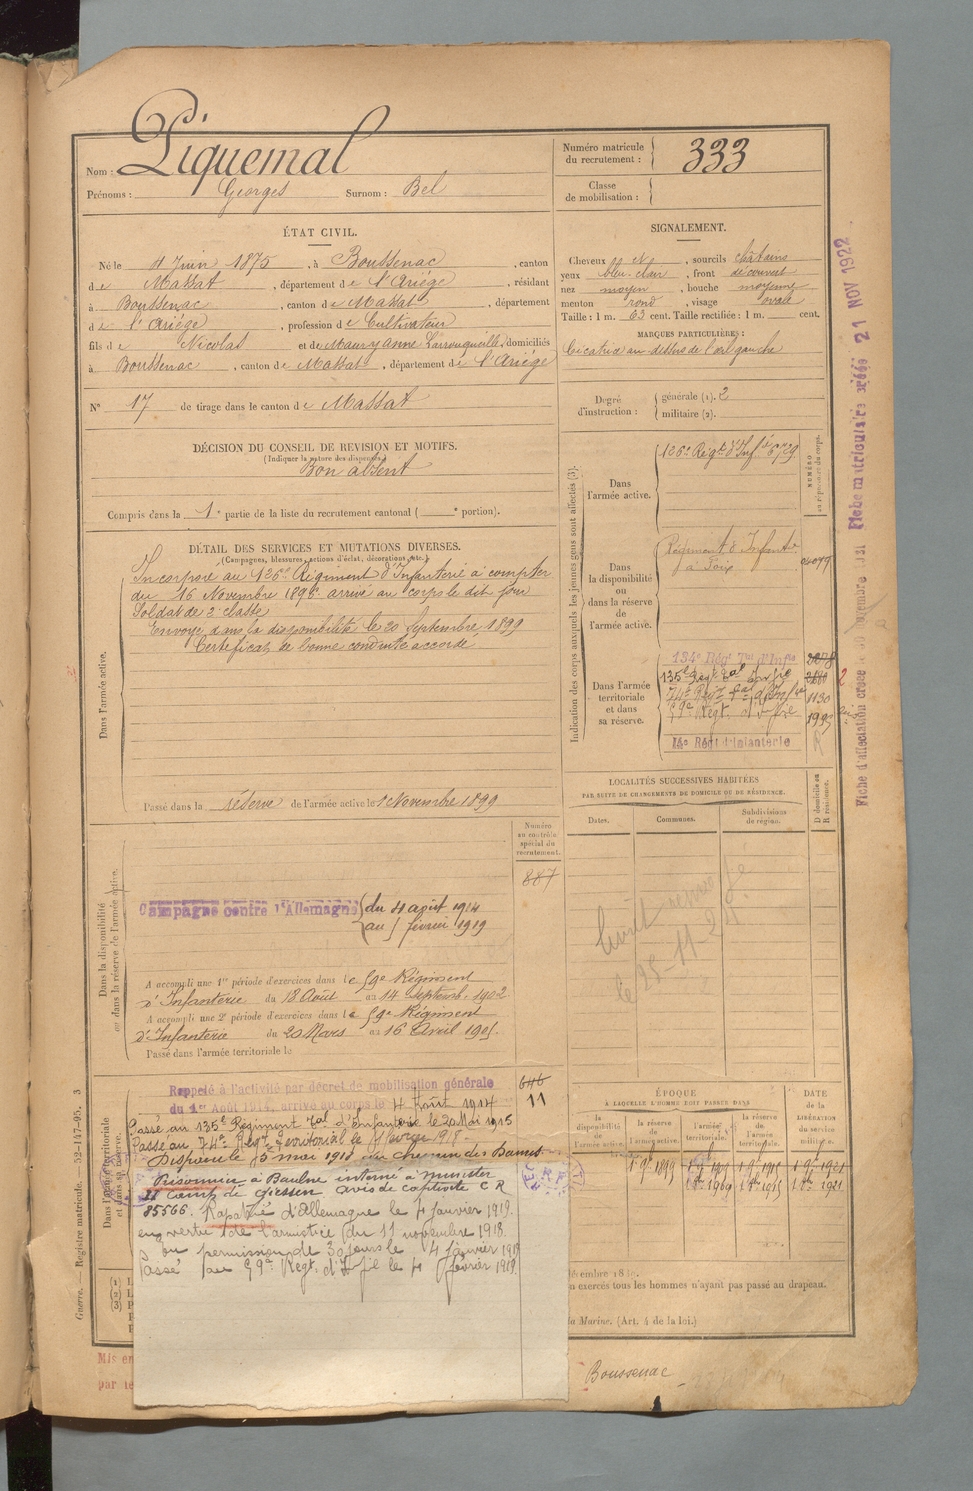 Nom : Piquemal
Prénoms : Georges Surnom : Bel
Numéro matricule du recrutement : 333
Classe de mobilisation :
ÉTAT CIVIL.
Né le 4 Juin 1875, à Boussenac, canton
de Massat, département de l'Ariège, résidant
à Boussenac, canton de Massat, département
de l'Ariège, profession de Cultivateur
fils de Nicolas et de Maury Anne Larrouqueille, domiciliés
à Boussenac, canton de Massat, département de l'Ariège
N° 17 de tirage dans le canton de Massat
SIGNALEMENT.
Cheveux et, sourcils châtains
yeux bleu-clair, front découvert
nez moyen, bouche moyenne
menton rond, visage ovale
Taille : 1 m. 63 cent. Taille rectifiée : 1 m. cent.
MARQUES PARTICULIÈRES :
Cicatrice au dessus de l'œil gauche
Degré d'instruction : générale (1). 2
militaire (2).
DÉCISION DU CONSEIL DE REVISION ET MOTIFS.
(Indiquer la nature des dispenses)
Bon absent
Compris dans la 1e partie de la liste du recrutement cantonal ( e portion).
DÉTAIL DES SERVICES ET MUTATIONS DIVERSES.
(Campagnes, blessures, actions d'éclat, décorations, etc.)
Dans l'armée active.
Incorporé au 126e Régiment d'Infanterie à compter
du 16 Novembre 1896 arrivé au corps le dit jour
Soldat de 2e classe
Envoyé dans la disponibilité le 20 Septembre 1899
Certificat de bonne conduite accordé
Passé dans la réserve de l'armée active le 1 Novembre 1899
Indication des corps auxquels les jeunes gens sont affectés (3).
NUMÉRO au répertoire du corps.
Dans l'armée active. 126e Régt d'Infie 6729
Dans la disponibilité ou dans la réserve de l'armée active.
Régiment d'Infanterie
à Foix
Dans l'armée territoriale et dans sa réserve.
134e Régt Tal d'Infie
135e Régt Tal Infie
74e Régt Tal d'Infie 1130
59e Régt d'Infie
14e Régt d'Infanterie
LOCALITÉS SUCCESSIVES HABITÉES
PAR SUITE DE CHANGEMENTS DE DOMICILE OU DE RÉSIDENCE.
Dates. Communes. Subdivisions de région.
D domicile ou R résidence.
le 25-11-2
Dans la disponibilité ou dans la réserve de l'armée active.
Numéro au contrôle spécial du recrutement.
887
Campagne contre l'Allemagne du 4 août 1914
au 5 février 1919
A accompli une 1re période d'exercices dans le 59e Régiment
d'Infanterie du 18 Août au 14 Septemb. 1902
A accompli une 2e période d'exercices dans le 59e Régiment
d'Infanterie du 20 Mars au 16 Avril 1905.
Passé dans l'armée territoriale le
Rappelé à l'activité par décret de mobilisation générale
du 1er Août 1914, arrivé au corps le 4 Août 1914
646
11
Passé au 135e Régiment Tal d'Infanterie le 20 Mai 1915
Passé au 74e Régt Territorial le février 1918.
Disparu le 5 mai 1918 au Chemin des Dames
Prisonnier à Baulne interné à Munster
camp de Giessen avis de captivité C R
85566. Rapatrié d'Allemagne le 4 janvier 1919.
en vertu de l'armistice du 11 novembre 1918.
en permission de 30 jours le 4 janvier 1919
Passé au 59e Régt d'Ifie le 4 février 1919.
ÉPOQUE
À LAQUELLE L'HOMME DOIT PASSER DANS
la disponibilité de l'armée active.
la réserve de l'armée active.
l'armée territoriale.
la réserve de l'armée territoriale.
DATE de la LIBÉRATION du SERVICE militaire.
1 9bre 1899
1 9bre 1915 1 9bre 1921
1 8bre 1909 1 8bre 1915 1 8bre 1921
n exercés tous les hommes n'ayant pas passé au drapeau.
la Marine. (Art. 4 de la loi.)
Boussenac
Guerre. — Registre matricule. — 52-147-95. 3
21 NOV 1922